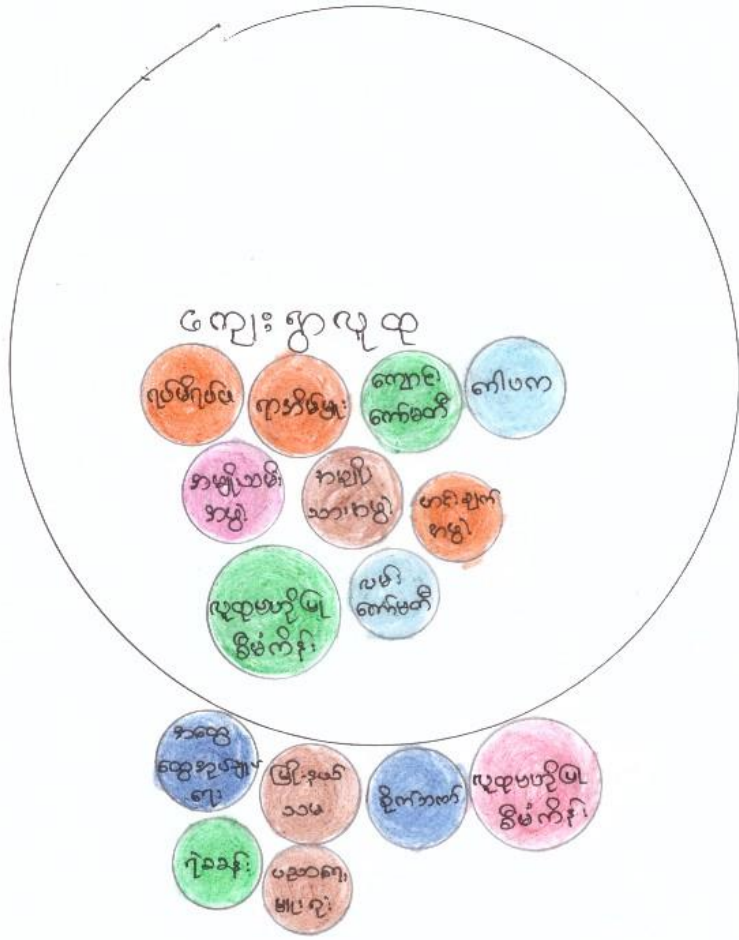 ကျေးရွာလူထု
ရပ်မိရပ်ဖ
ရာအိမ်မှူး
ကျောင်း
ကော်မတီ
ကပက
အမျိုးသမီး
အဖွဲ့
အမျိုး
သားအဖွဲ့
ဟင်းချက်
အဖွဲ့
လူထုဗဟိုပြု
စီမံကိန်း
လမ်း
ကော်မတီ
အထွေ
ထွေအုပ်ချုပ်
ရေး
မြို့နယ်
သမ
စိုက်ဘဏ်
လူထုဗဟိုပြု
စီမံကိန်း
ရဲစခန်း
ပညာရေး
မှူးရုံး